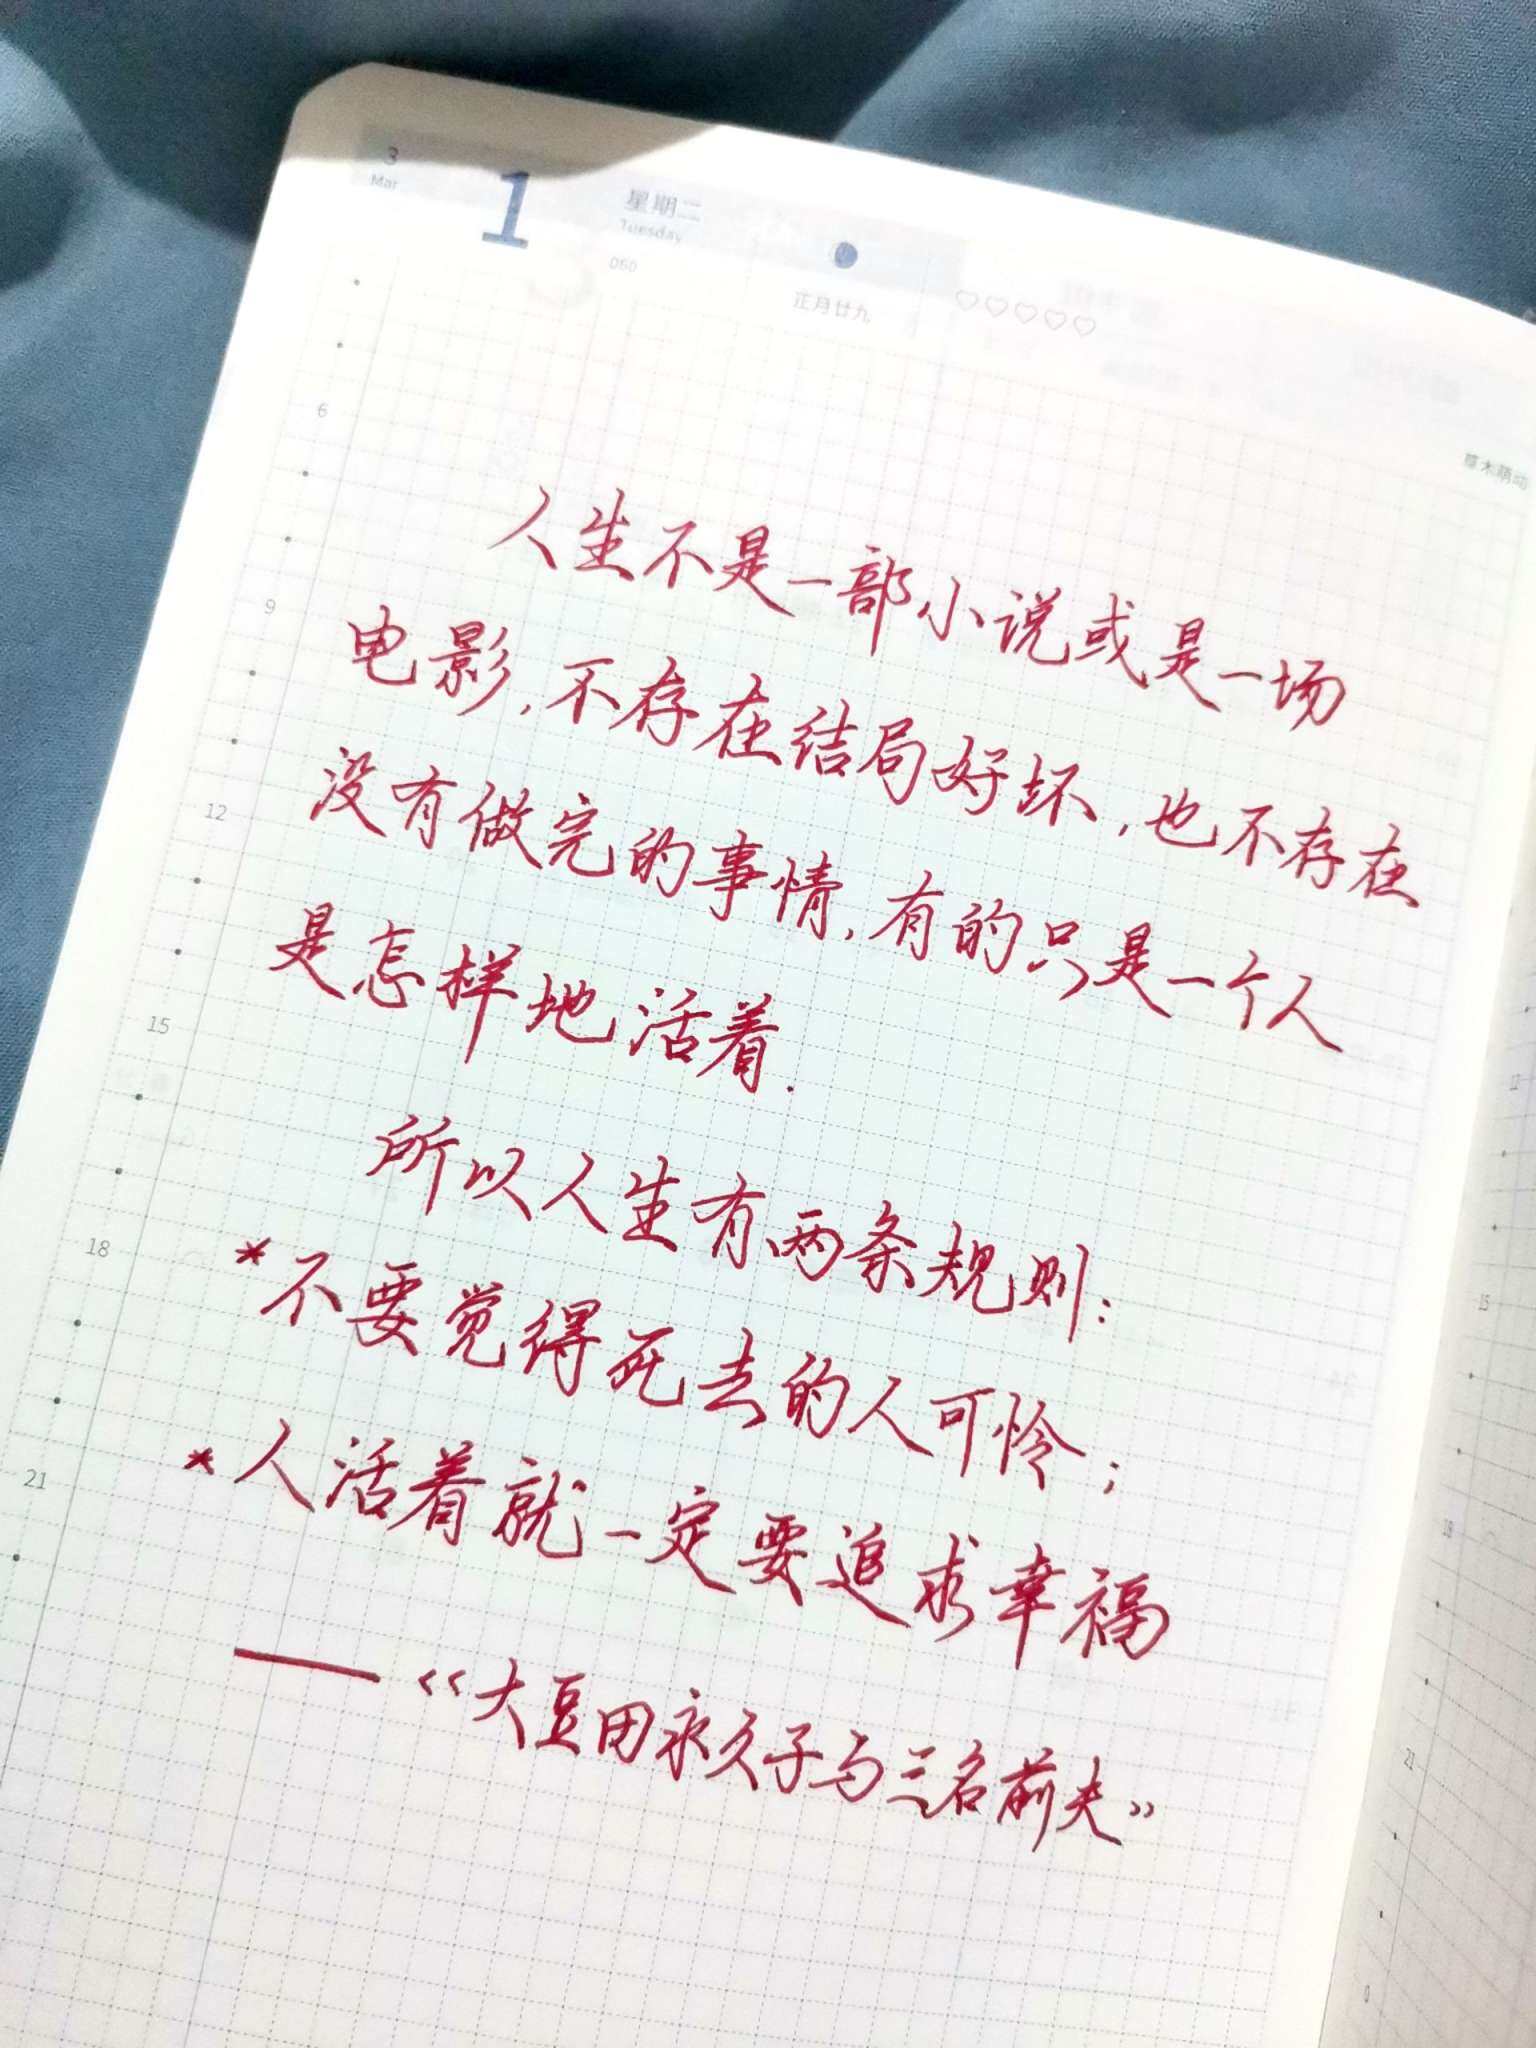 3
Mar
1
星期二
Tuesday
060
正月廿九
草木萌动
6
人生不是一部小说或是一场
9
电影,不存在结局好坏,也不存在
12
没有做完的事情,有的只是一个人
是怎样地活着.
15
所以人生有两条规则:
18
*不要觉得死去的人可怜;
*人活着就一定要追求幸福
21
——《大豆田永久子与三名前夫》
12
15
18
21
0